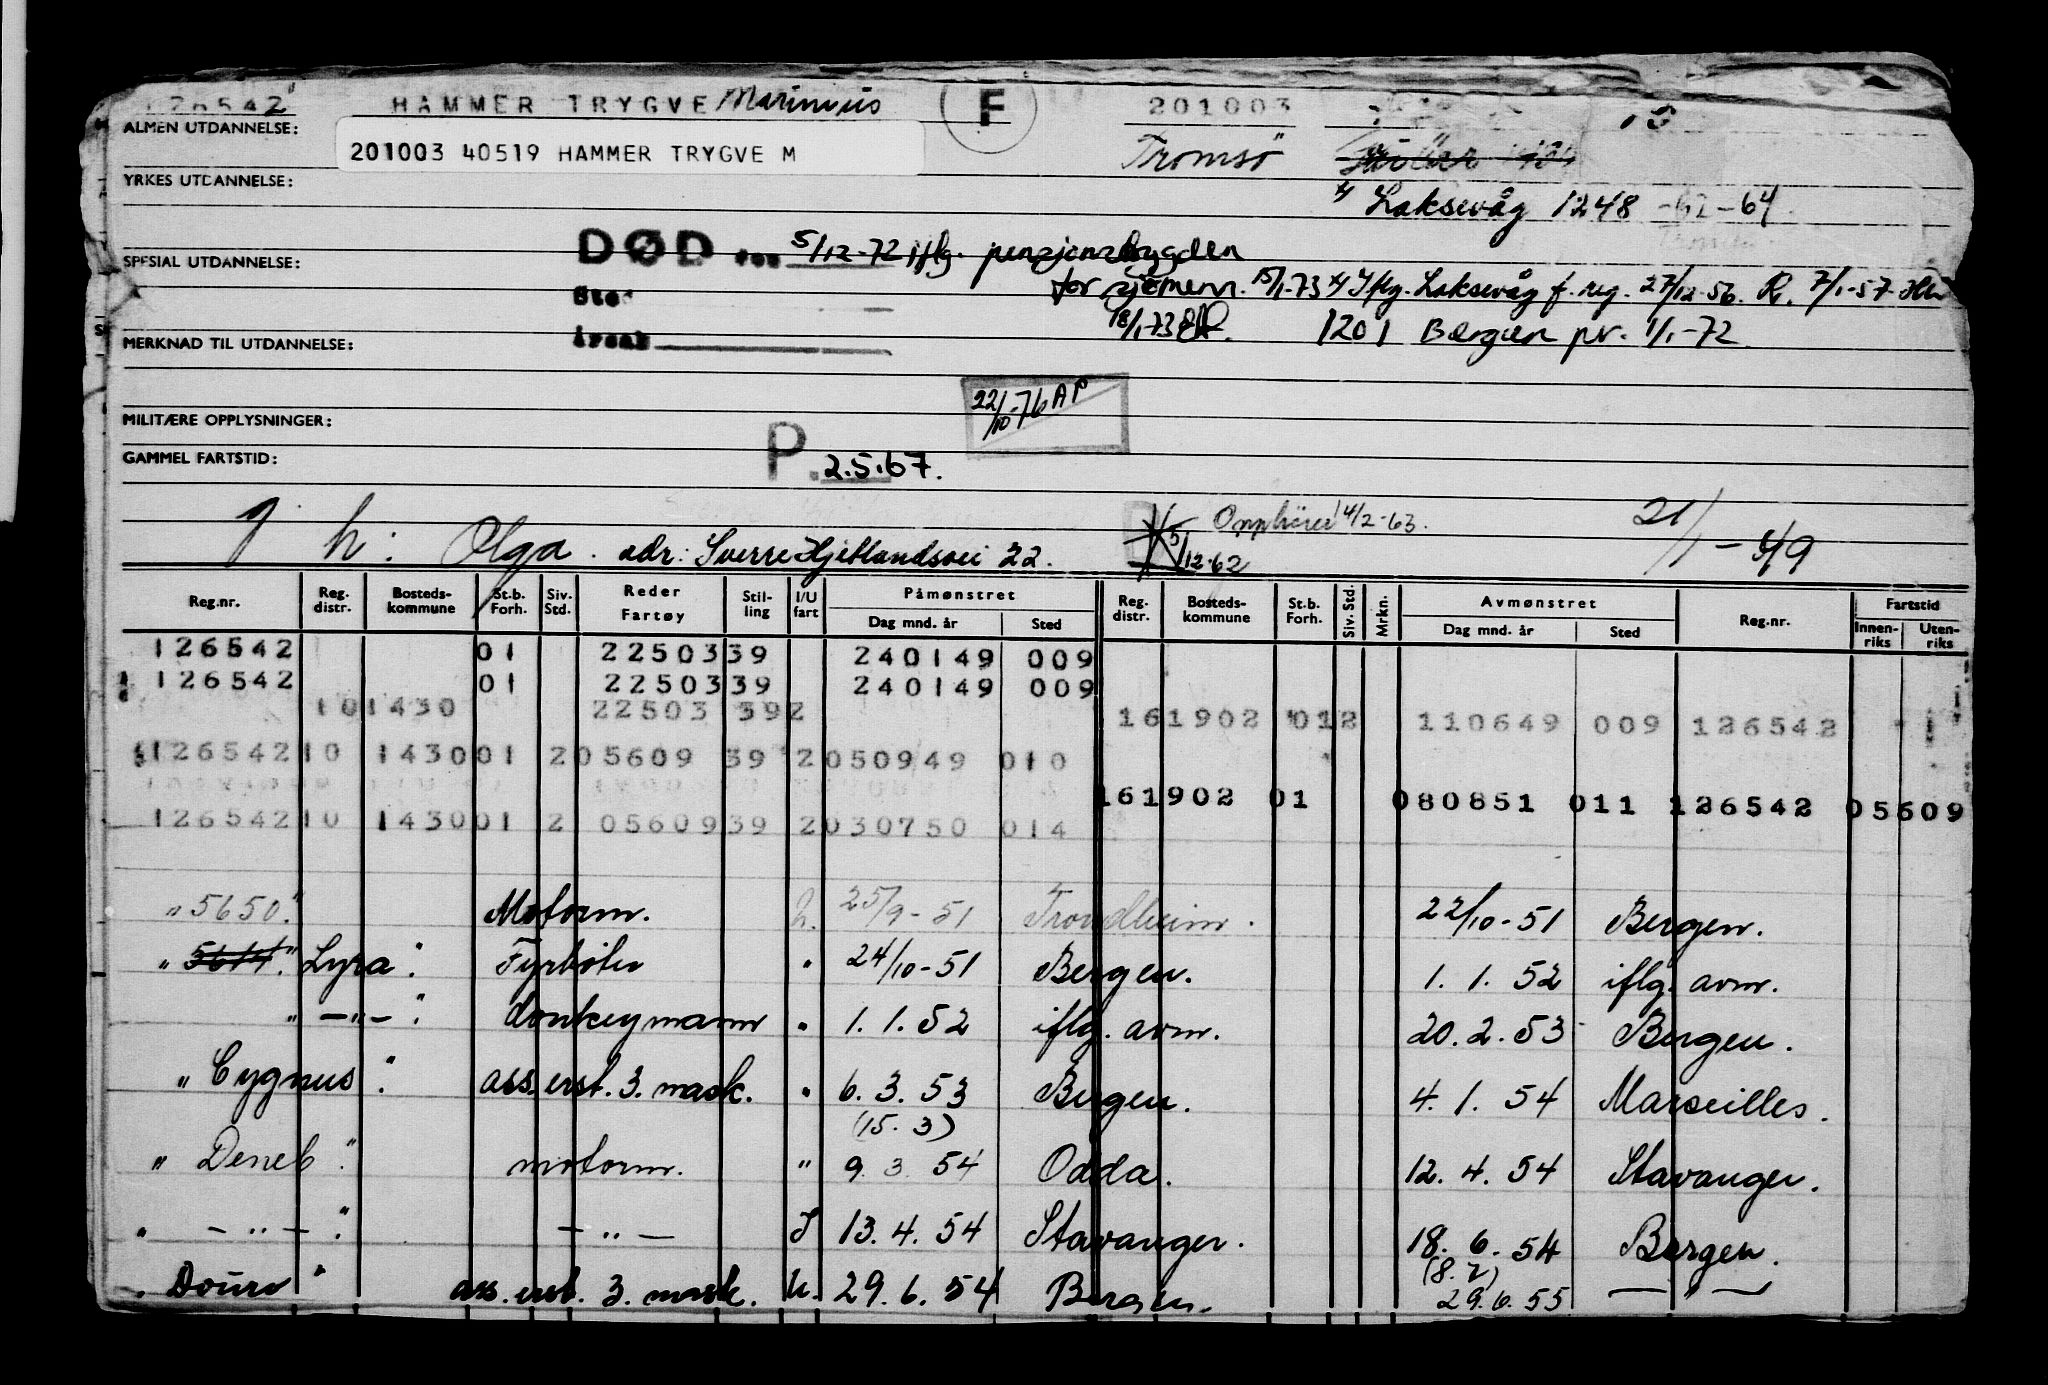 126542 HAMMER TRYGVE Marinius F 201003
ALMEN UTDANNELSE:
201003 40519 HAMMER TRYGVE M
Tromsö
YRKES UTDANNELSE:
Laksevåg 1248 -62-64
DØD 5/12-72 iflg. pensjonstrygden
SPESIAL UTDANNELSE:
for sjömenn. 15/1-73 Iflg. Laksevåg f. reg. 27/12-56. R. 7/1-57
Sted
18/1-73 1201 Bergen pr. 1/1-72
Årsak
MERKNAD TIL UTDANNELSE:
22/10-76 AP
MILITÆRE OPPLYSNINGER:
GAMMEL FARTSTID:
P. 2.5.67.
Opphörer 14/2-63. 21/1-49
g. h: Olga. adr: Sverre Hjetlandsvei 22. 5/12-62
Reg.nr. Reg. distr. Bosteds-kommune St.b. Forh. Siv. Std. Reder Fartøy Stil-ling I/U fart Påmønstret Dag mnd. år Sted Reg. distr. Bosteds-kommune St.b. Forh. Siv. Std. Mrkn. Avmønstret Dag mnd. år Sted Reg.nr. Fartstid Innen-riks Uten-riks
126542 01 22503 39 240149 009
126542 01 22503 39 240149 009
10 1430 22503 39 2 16 1902 01 2 110649 009 126542
126542 10 1430 01 2 05609 39 2 050949 010
16 1902 01 080851 011 126542 05609
126542 10 1430 01 2 05609 39 2 030750 014
"5650." Motorm. U. 25/9-51 Trondheim. 22/10-51 Bergen.
" 5614." Lyra". Fyrböter " 24/10-51 Bergen. 1. 1. 52 iflg. avm.
" —"— ". donkeymann " 1. 1. 52 iflg. avm. 20. 2. 53 Bergen.
" Cygnus ". ass. erst. 3. mask. " 6. 3. 53 Bergen. 4. 1. 54 Marseilles.
(15. 3)
" Deneb". motorm. " 9. 3. 54 Odda. 12. 4. 54 Stavanger.
" —"— ". —"— I 13. 4. 54 Stavanger. 18. 6. 54 Bergen.
(8. 7)
" Douro " ass. erst. 3. mask. U. 29. 6. 54 Bergen. 29. 6. 55 —"—